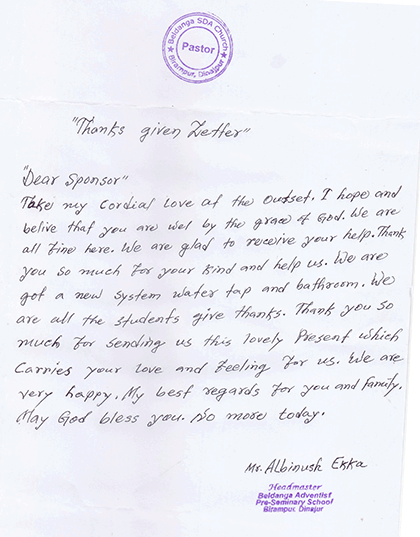 Beldanga SDA Church
Pastor
Birampur, Dinajpur
"Thanks given Letter"
"Dear Sponsor"
Take my Cordial Love at the Outset. I hope and
belive that you are wel by the grace of God. We are
all fine here. We are glad to receive your help. Thank
you so much for your kind and help us. We are
got a new system water tap and bathroom. We
are all the students give thanks. Thank you so
much for sending us this lovely Present which
Carries your love and feeling for us. We are
very happy. My best regards for you and Family.
May God bless you. No more today.
Mr. Albinush Ekka
Headmaster
Beldanga Adventist
Pre-Seminary School
Birampur, Dinajur